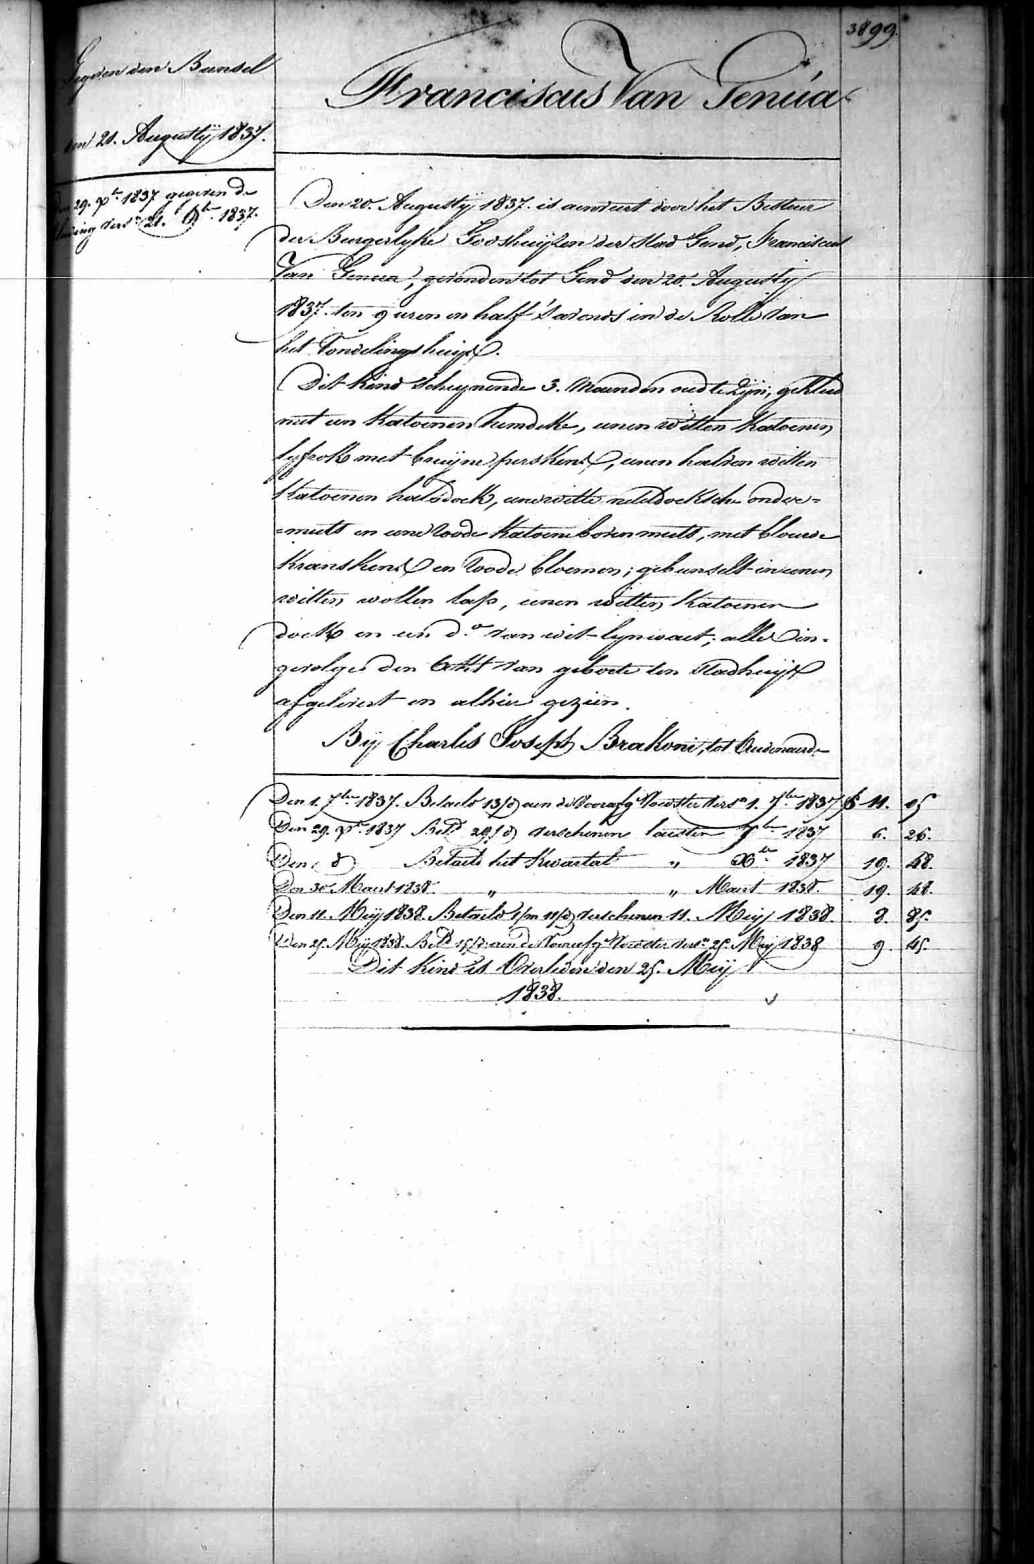 3899.
Franciscus Van Genúa
Gegeven den Bunsel
den 21. Augusty 1837.
den 29. 9bre 1837 gegeven de
vers. 21. 1837.
Den 20. Augusty 1837. is aenveert door het Bestuer
der Burgerlyke Godshuyzen der stad Gend, Franciscus
Van Genua, gevonden tot Gend den 20. Augusty
1837. ten 9 uren en half 's avonds in de Rolle van
het Vondelingshuys.
Dit kind schynende 3. Maenden oud te zyn; gekleed
met een Katoenen hemdeke, eenen witten Katoenen
lyfrok met bruyne perskens, eenen halven witten
Katoenen halsdoek, eene witte neteldoeksche onder=
=muts en eene roode Katoene bovenmuts, met blauwe
Kranskens en roode bloemen; gebunselt in eenen
witten wollen lap, eenen witten Katoenen
doek en een do. van wit lynwaet; alles in-
gevolge den Akt van geboorte ten Stadhuys
afgelevert en alhier gezien.
By Charles Joseph Brakoni, tot Audenaerde
Den 1. 7bre 1837. Betaeld 13/d aen de Voorafge Voedster vers. 1. 7bre 1837 f 11. 05
Den 29. 9bre 1837 Betd 29/d verschenen laesten 7bre 1837 6. 26.
Den do Betaeld het Kwartael " Xbre 1837 19. 48.
Den 30. Maert 1838. " " Maert 1838. 19. 48.
Den 11. Mey 1838. Betaeld 1/m 11/d verschenen 11. Mey 1838. 8. 85.
Den 25. Mey 1838. Betd 15/d aen de Voorafge Voedster vers. 25. Mey 1838 9. 45.
Dit Kind is Overleden den 25. Mey
1838.